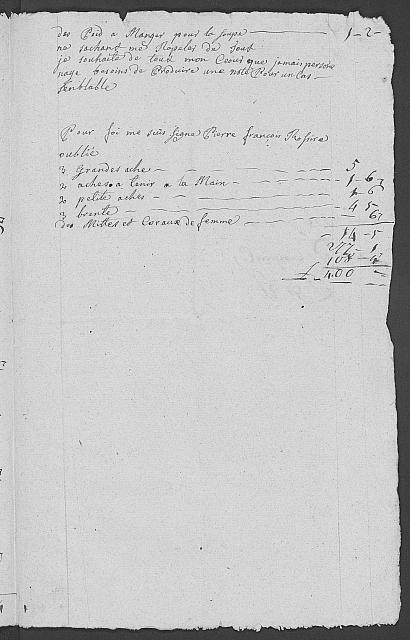 des Pois a Manger pour la soupe — 1-2-
ne sachant me Rapeler de tout
je souhaite de tout mon Coeur que jamais person
nage besoins de Produire une note Pour un Cas
semblable
Pour foi me suis signe Pierre françois
oublié
3 Grandes ache — 5
2 aches a tenir a la Main — 1-6
2 petite aches — 1-6
3 — 4-5
des Mittes et Coraux de femme — 6
14-5
277-1
108-
£ 400